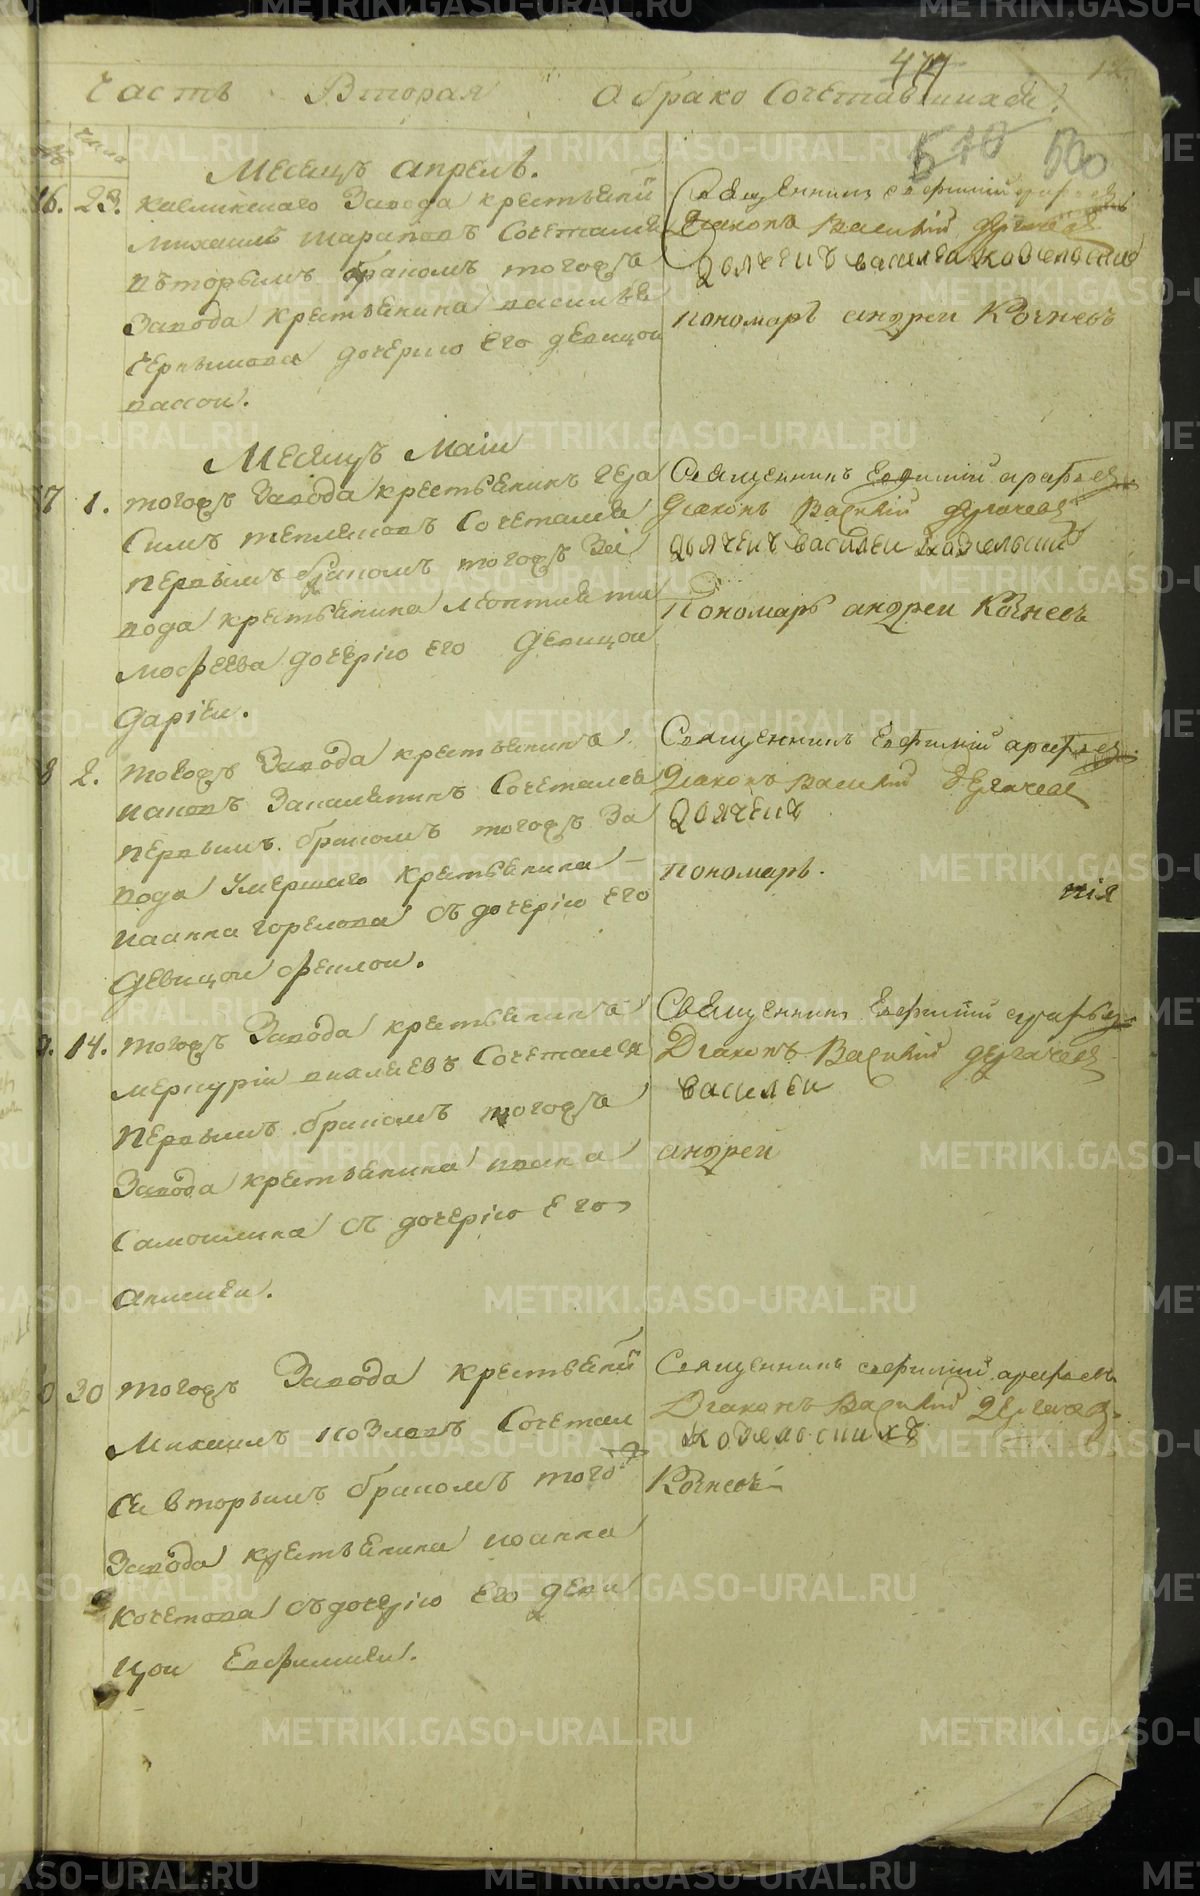 477
Часть Вторая О бракосочетавшихся
510 500
Месяцъ апрель.
16. 23. каслинскаго Завода крестьянин
Михаилъ Сочетался
вторымъ бракомъ тогожъ
Завода крестьянина василья
дочерию его девицой
вассои.
Священникъ евфимий арефьев
Диаконъ Василий дергачев
Дьячекъ василеи козельский
пономарь андреи Кочневъ
Месяцъ Маiи
17 1. тогожъ Завода крестьянинъ гера
симъ Сочетался
первымъ бракомъ тогожъ За
вода крестьянина леонтия ти
мофеева дочерiю его девицои
дарiеи.
Священникъ Евфимий арефьев
Диаконъ Василий дергачев
Дьячекъ василеи козельский
Пономарь андреи Кочневъ
8 2. тогожъ Завода крестьянинъ
Сочетался
первымъ бракомъ тогожъ За
вода Умершаго крестьянина
иоанна горелова съ дочерiю его
девицои феклои.
Священникъ Евфимий арефьев
Диаконъ Василий Дергачев
Дьячекъ
пономарь.
нiя
9. 14. тогожъ Завода крестьянинъ
меркурiи Сочетался
первымъ бракомъ тогожъ
Завода крестьянина ивана
Самошкина съ дочерiю Его
Священникъ Евфимий арефьев
Диаконъ Василий дергачев
василеи
андреи
0 30 тогожъ Завода крестьянин
Михаилъ козловъ Сочетал
ся вторымъ бракомъ тогожъ
Завода крестьянина иоанна
кочетова съ дочерiю Его деви
цои Евфимиеи.
Священникъ евфимий арефьевъ
Диаконъ Василий Дергачев
козельскихъ
Кочневъ
METRIKI.GASO-URAL.RU